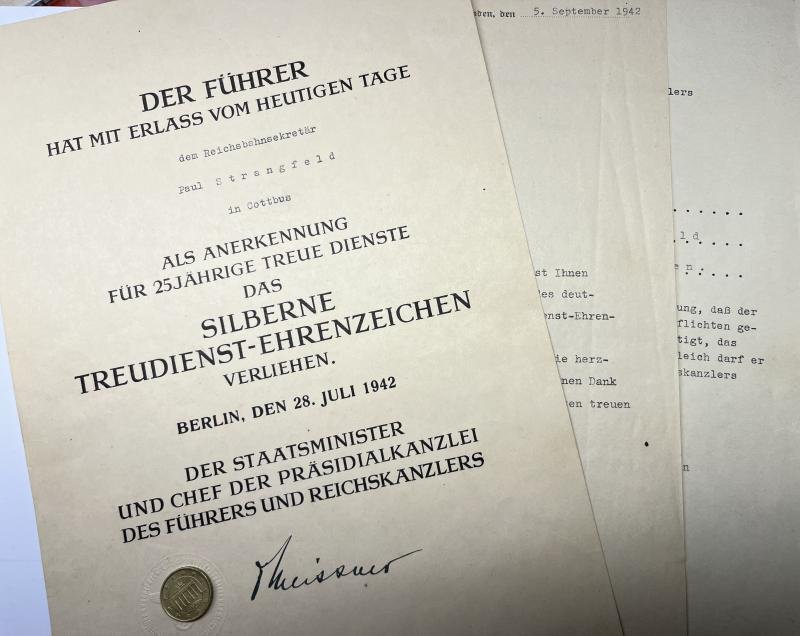 DER FÜHRER
HAT MIT ERLASS VOM HEUTIGEN TAGE
dem Reichsbahnsekretär
Paul Strangfeld
in Cottbus
ALS ANERKENNUNG
FÜR 25JÄHRIGE TREUE DIENSTE
DAS
SILBERNE
TREUDIENST-EHRENZEICHEN
VERLIEHEN.
BERLIN, DEN 28. JULI 1942
DER STAATSMINISTER
UND CHEF DER PRÄSIDIALKANZLEI
DES FÜHRERS UND REICHSKANZLERS
Meissner
den, den 5. September 1942
st Ihnen
es deut-
nst-Ehren-
ie herz-
nen Dank
en treuen
lers
ld
en.
ung, daß der
flichten ge-
tigt, das
leich darf er
skanzlers
n